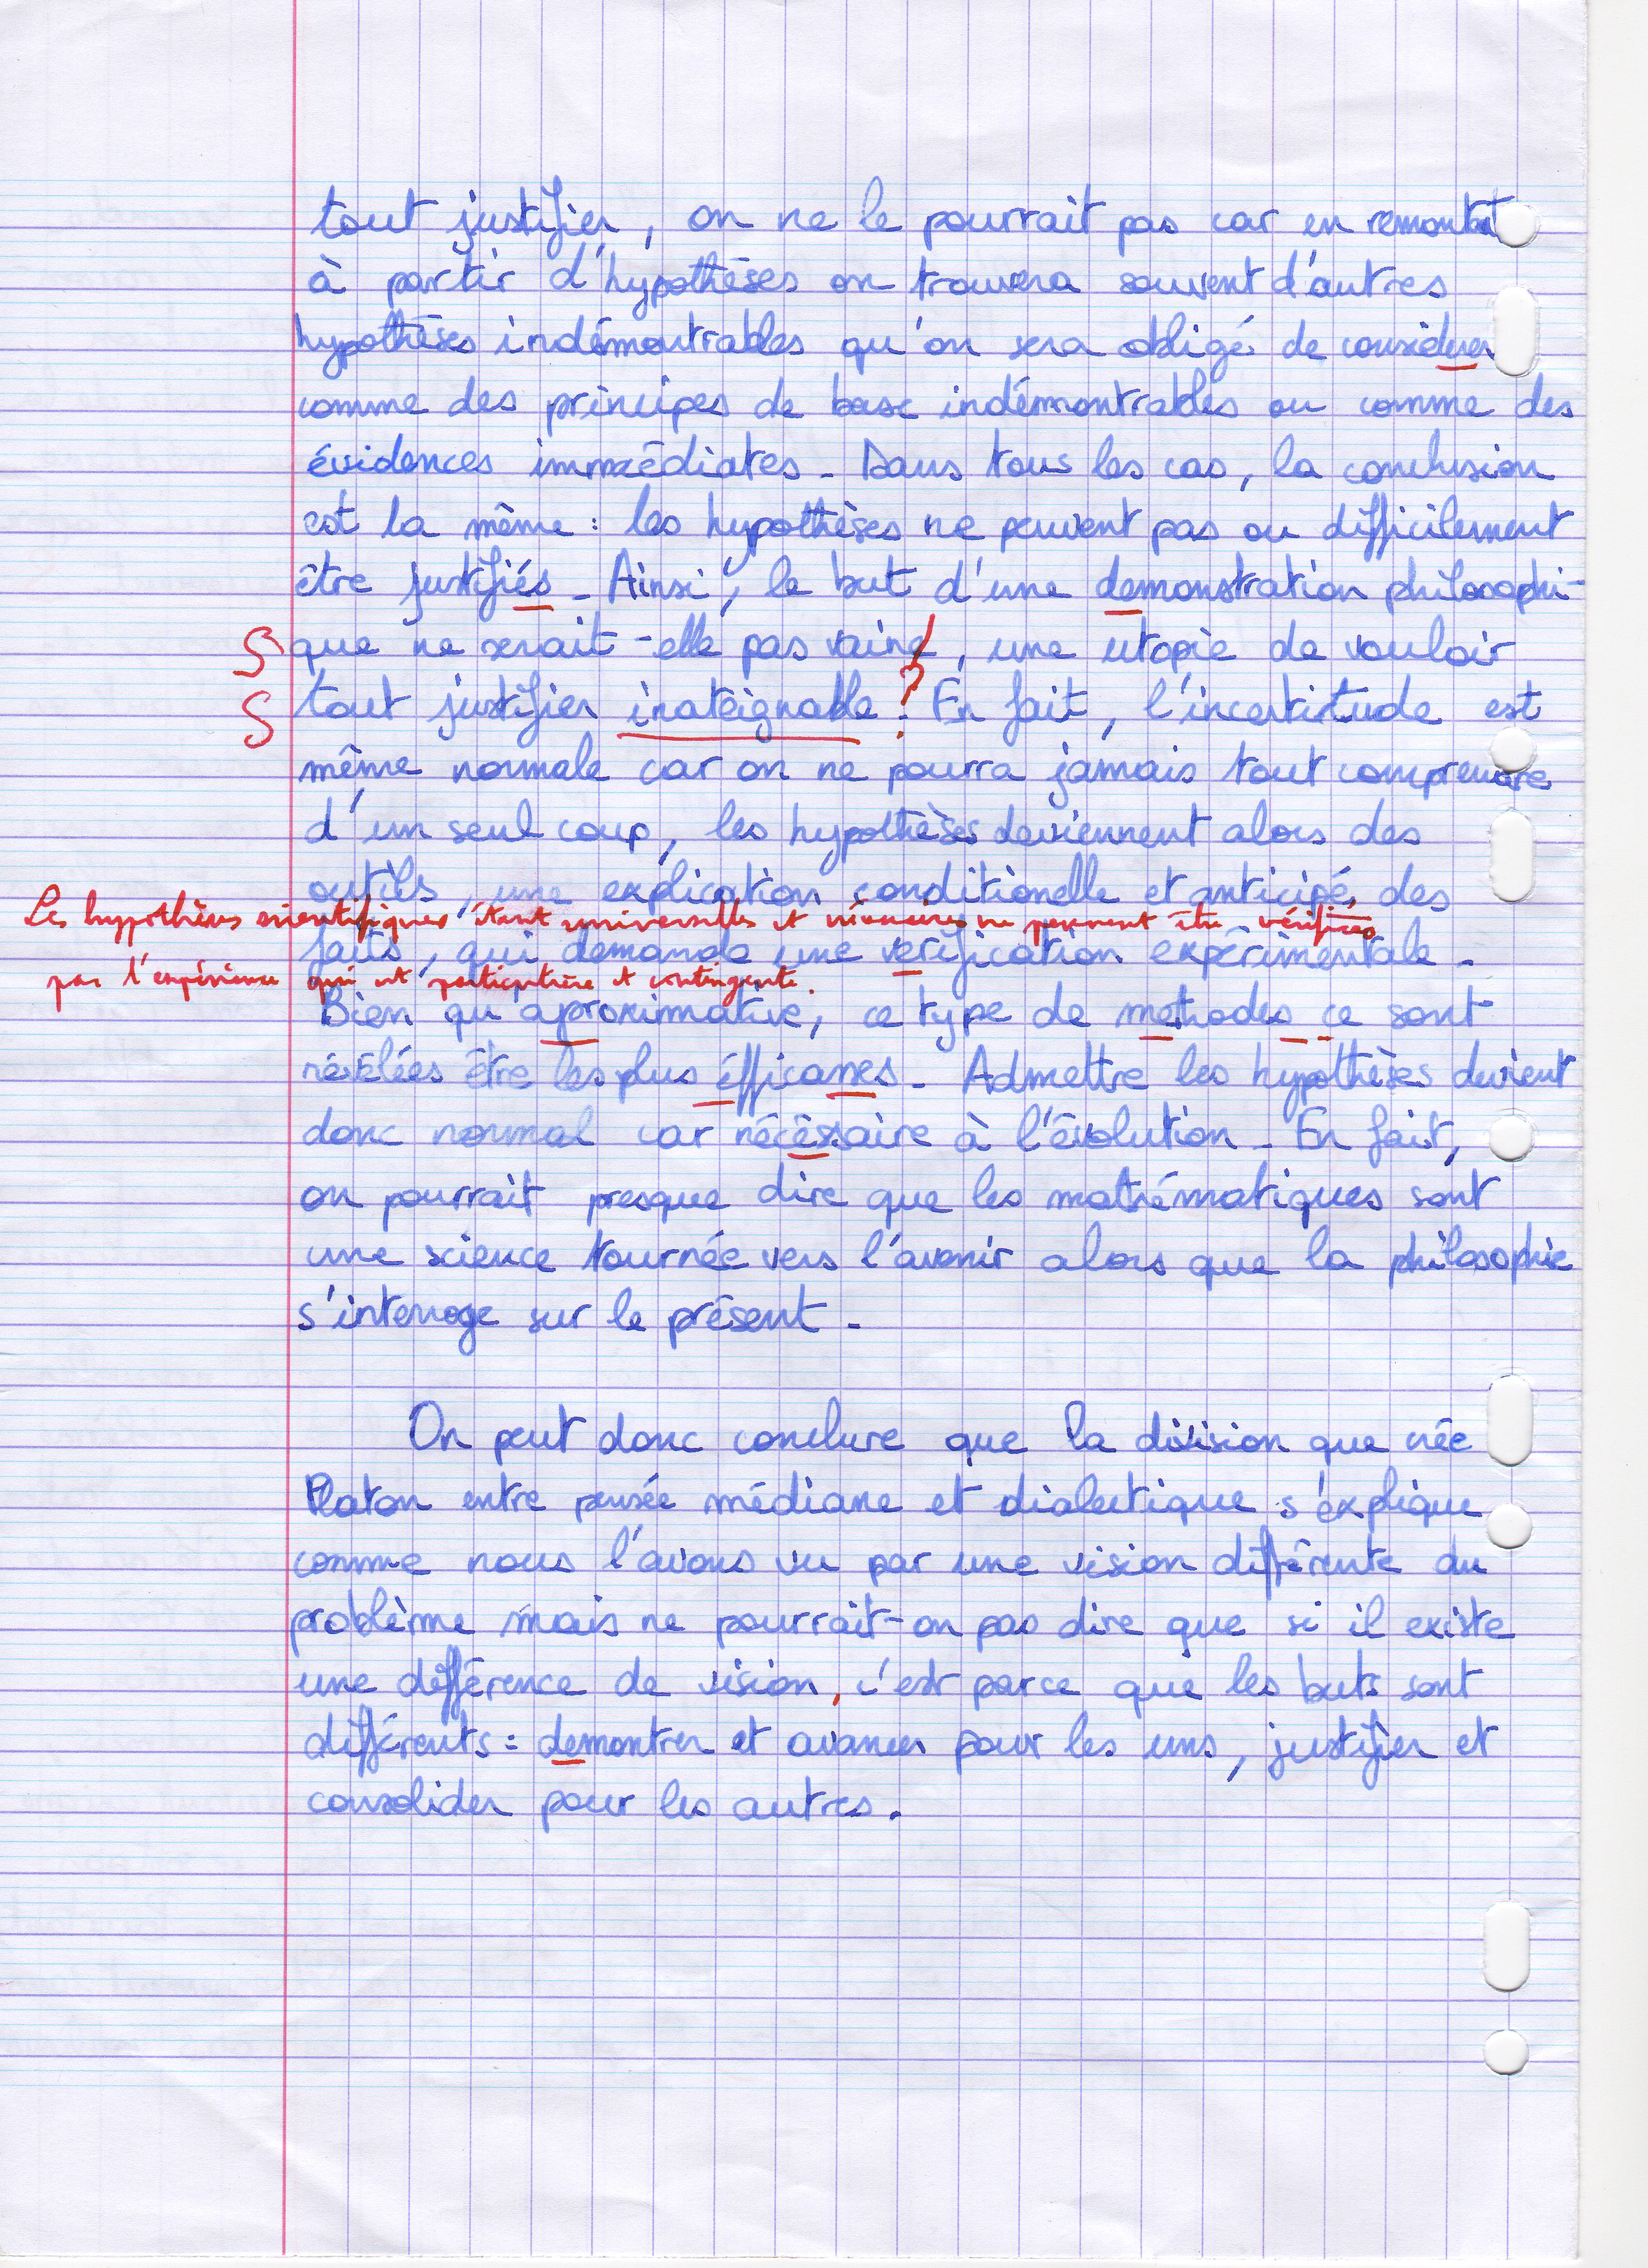 tout justifier, on ne le pourrait pas car en remontant
à partir d'hypothèses on trouvera souvent d'autres
hypothèses indémontrables qu'on sera obligé de considerer
comme des principes de base indémontrables ou comme des
évidences immédiates. Dans tous les cas, la conclusion
est la même : les hypothèses ne peuvent pas ou difficilement
être justifiés. Ainsi, le but d'une demonstration philosophi-
S que ne serait-elle pas vaine, une utopie de vouloir
S tout justifier inatéignable ? En fait, l'incertitude est
même normale car on ne pourra jamais tout comprendre
d'un seul coup, les hypothèses deviennent alors des
outils, une explication conditionelle et anticipé des
Les hypothèses scientifiques étant universelles et nécessaires ne peuvent être vérifiées
faits, qui demande une verification expérimentale.
par l'expérience qui est particulière et contingente.
Bien qu'aproximative, ce type de methodes ce sont
révélées être les plus éfficasses. Admettre les hypothèses devient
donc normal car nécéssaire à l'évolution. En fait,
on pourrait presque dire que les mathématiques sont
une science tournée vers l'avenir alors que la philosophie
s'interroge sur le présent.
On peut donc conclure que la division que crée
Platon entre pensée médiane et dialectique s'éxplique
comme nous l'avons vu par une vision différente du
problème mais ne pourrait-on pas dire que si il existe
une différence de vision, c'est parce que les buts sont
différents : demontrer et avancer pour les uns, justifier et
consolider pour les autres.